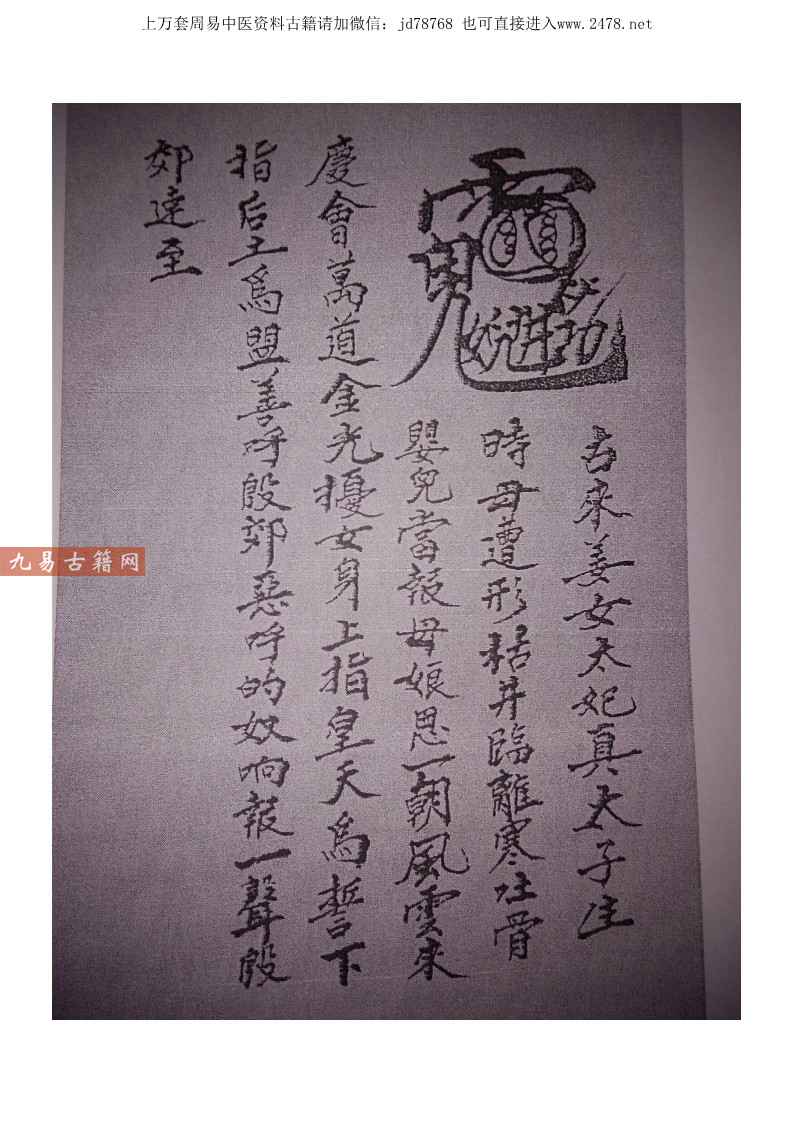 上万套周易中医资料古籍请加微信：jd78768 也可直接进入www.2478.net
古來姜女太妃真太子生
時母遭形枯井臨離寒吐骨
嬰兒當報母娘恩一朝風雲來
慶會萬道金光擾女身上指皇天為誓下
指后土為盟善呼殷郊惡呼的奴响報一聲殷
郊速至
九易古籍网